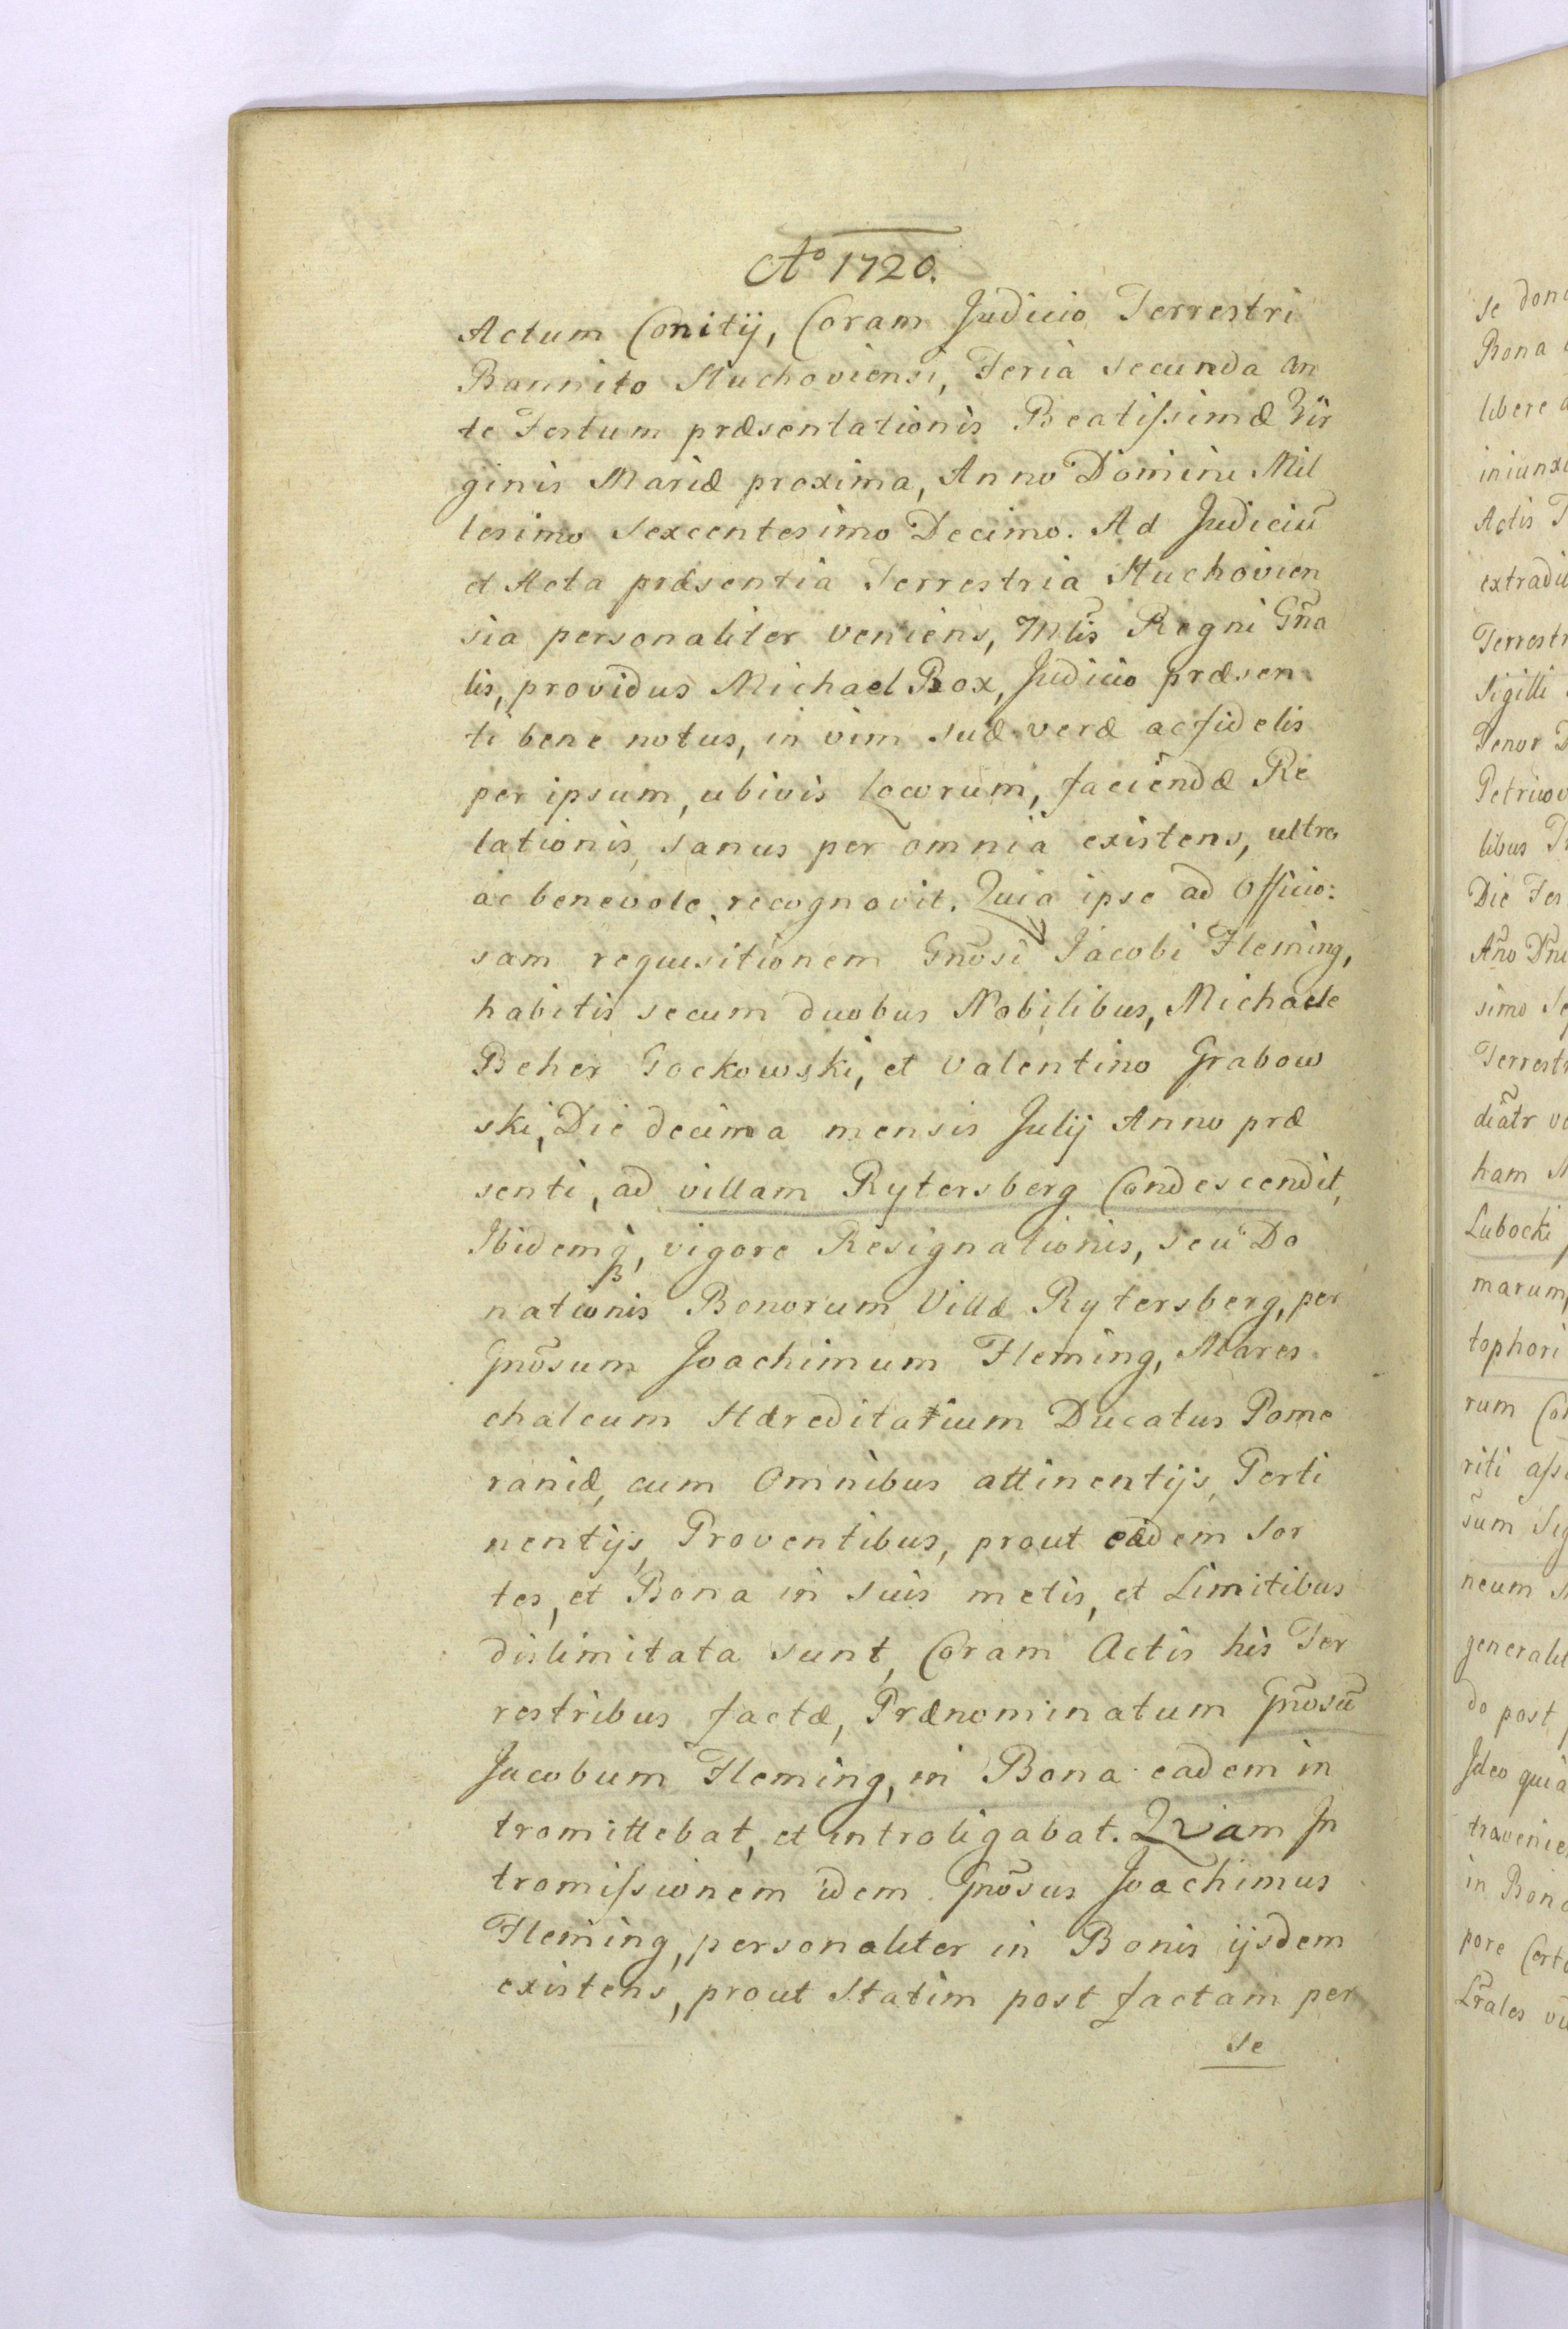 Aº 1720.
Actum Conitij, Coram Judicio Terrestri
Bannito Stuchoviensi, Feria secunda an
te Festum præsentationis Beatiſsimæ Vir
ginis Mariæ proxima, Anno Domini Mil
lesimo Sexcentesimo Decimo. Ad Judiciū
et Acta præsentia Terrestria Stuchovien
sia personaliter veniens, Mlis Regni Gña
lis, providus Michael Box, Judicio præsen
ti bene notus, in vim suæ veræ ac fidelis
per ipsum, ubivis locorum, faciendæ Re
lationis, sanus per omnia existens, ultro
ac benevole recognovit. Quia ipse ad Officio:
sam requisitionem Gñosi Jacobi Fleming,
habitis secum duobus Nobilibus, Michaele
Beher Gockowski, et Valentino Grabow
ski, Die decima mensis Julij Anno præ
senti, ad villam Rytersberg Condescendit,
Ibidemq, vigore Resignationis, seu Do
nationis Bonorum Villæ Rytersberg, per
Gñosum Joachimum Fleming, Mares
chalcum Hæreditarium Ducatus Pome
raniæ, cum Omnibus attinentijs, Perti
nentijs, Proventibus, prout eadem Sor
tes, et Bona in suis metis, et Limitibus
dislimitata sunt, Coram Actis his Ter
restribus factæ, Prænominatum Gñosū
Jacobum Fleming, in Bona eadem in
tromittebat, et introligabat. Quam In
tromiſsionem idem Gñosus Joachimus
Fleming, personaliter in Bonis ijsdem
existens, prout Statim post factam per
se
se
Bona
libere
Actis
Sigilli
Tenor
Die
Año
simo
ham
Lubocki
marum,
tophori
rum
riti
neum
do post
Ideo quia
in
pore